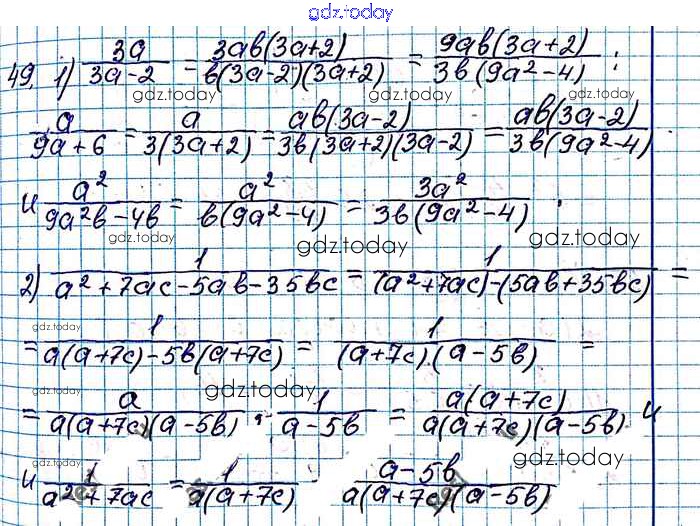 gdz.today
49. 1) 3a/(3a-2) = 3ab(3a+2)/(b(3a-2)(3a+2)) = 9ab(3a+2)/(3b(9a²-4)) ;
gdz.today gdz.today
a/(9a+6) = a/(3(3a+2)) = ab(3a-2)/(3b(3a+2)(3a-2)) = ab(3a-2)/(3b(9a²-4))
gdz.today gdz.today
и a²/(9a²b-4b) = a²/(b(9a²-4)) = 3a²/(3b(9a²-4)) .
gdz.today gdz.today gdz.today
2) 1/(a²+7ac-5ab-35bc) = 1/((a²+7ac)-(5ab+35bc)) =
gdz.today gdz.today
= 1/(a(a+7c)-5b(a+7c)) = 1/((a+7c)(a-5b)) =
gdz.today gdz.today
= a/(a(a+7c)(a-5b)) ; 1/(a-5b) = a(a+7c)/(a(a+7c)(a-5b)) и
gdz.today gdz.today
и 1/(a²+7ac) = 1/(a(a+7c)) = a-5b/(a(a+7c)(a-5b))